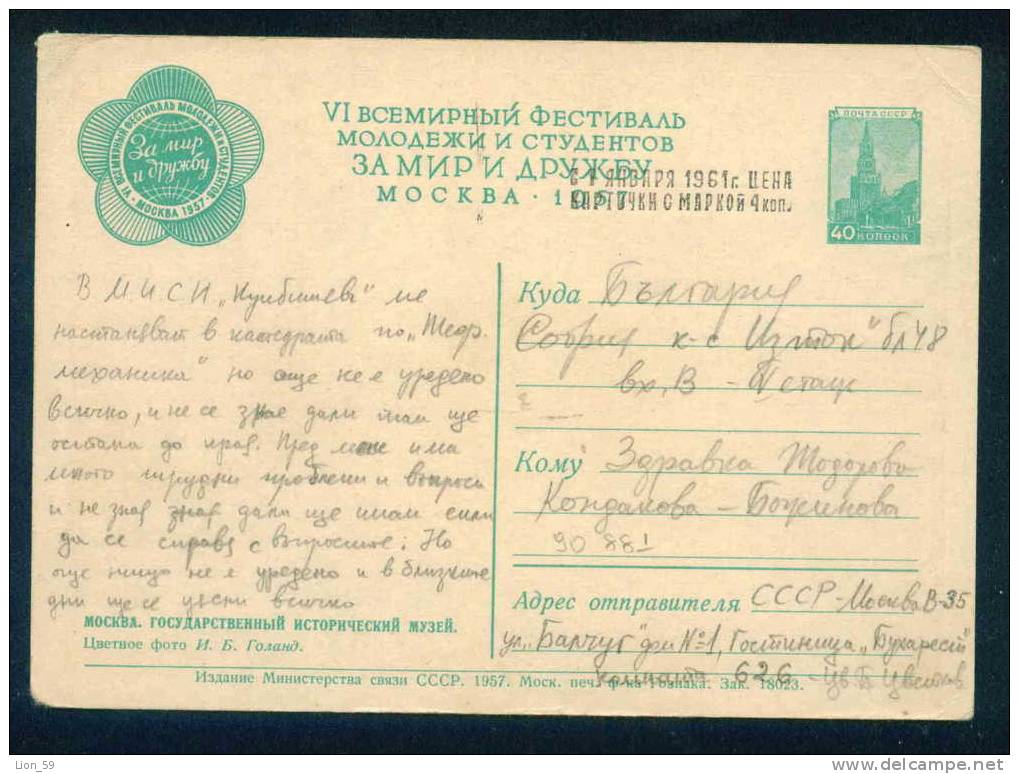 VI ВСЕМИРНЫЙ ФЕСТИВАЛЬ
МОЛОДЕЖИ И СТУДЕНТОВ
ЗА МИР И ДРУЖБУ
МОСКВА · 1957
VI ВСЕМИРНЫЙ ФЕСТИВАЛЬ МОЛОДЕЖИ И СТУДЕНТОВ
За мир
и дружбу
· МОСКВА 1957 ·
С 1 ЯНВАРЯ 1961 г. ЦЕНА
КАРТОЧКИ С МАРКОЙ 4 коп.
ПОЧТА СССР
40 КОПЕЕК
В МИСИ „Куйбишев" ме
настаняват в катедрата по „Теор.
механика" но още не е уредено
всичко, и не се знае дали там ще
остана до край. Пред мене има
много трудни проблеми и въпроси
и не зная зная дали ще имам сили
да се справя с въпросите; Но
още нищо не е уредено и в близките
дни ще се уясни всичко
МОСКВА. ГОСУДАРСТВЕННЫЙ ИСТОРИЧЕСКИЙ МУЗЕЙ.
Цветное фото И. Б. Голанд.
Куда България
София к-с Изток" бл 48
вх. В - V етаж
Кому Здравка Тодорова
Кондакова - Божинова
90 881
Адрес отправителя СССР - Москва В-35
ул. „Балчуг" дом №1, Гостиница „Бухарест"
комната 626 - Цв Б Цветков
Издание Министерства связи СССР. 1957. Моск. печ. ф-ка Гознака. Зак. 18023.
Lion_59
http://www.delcampe.net